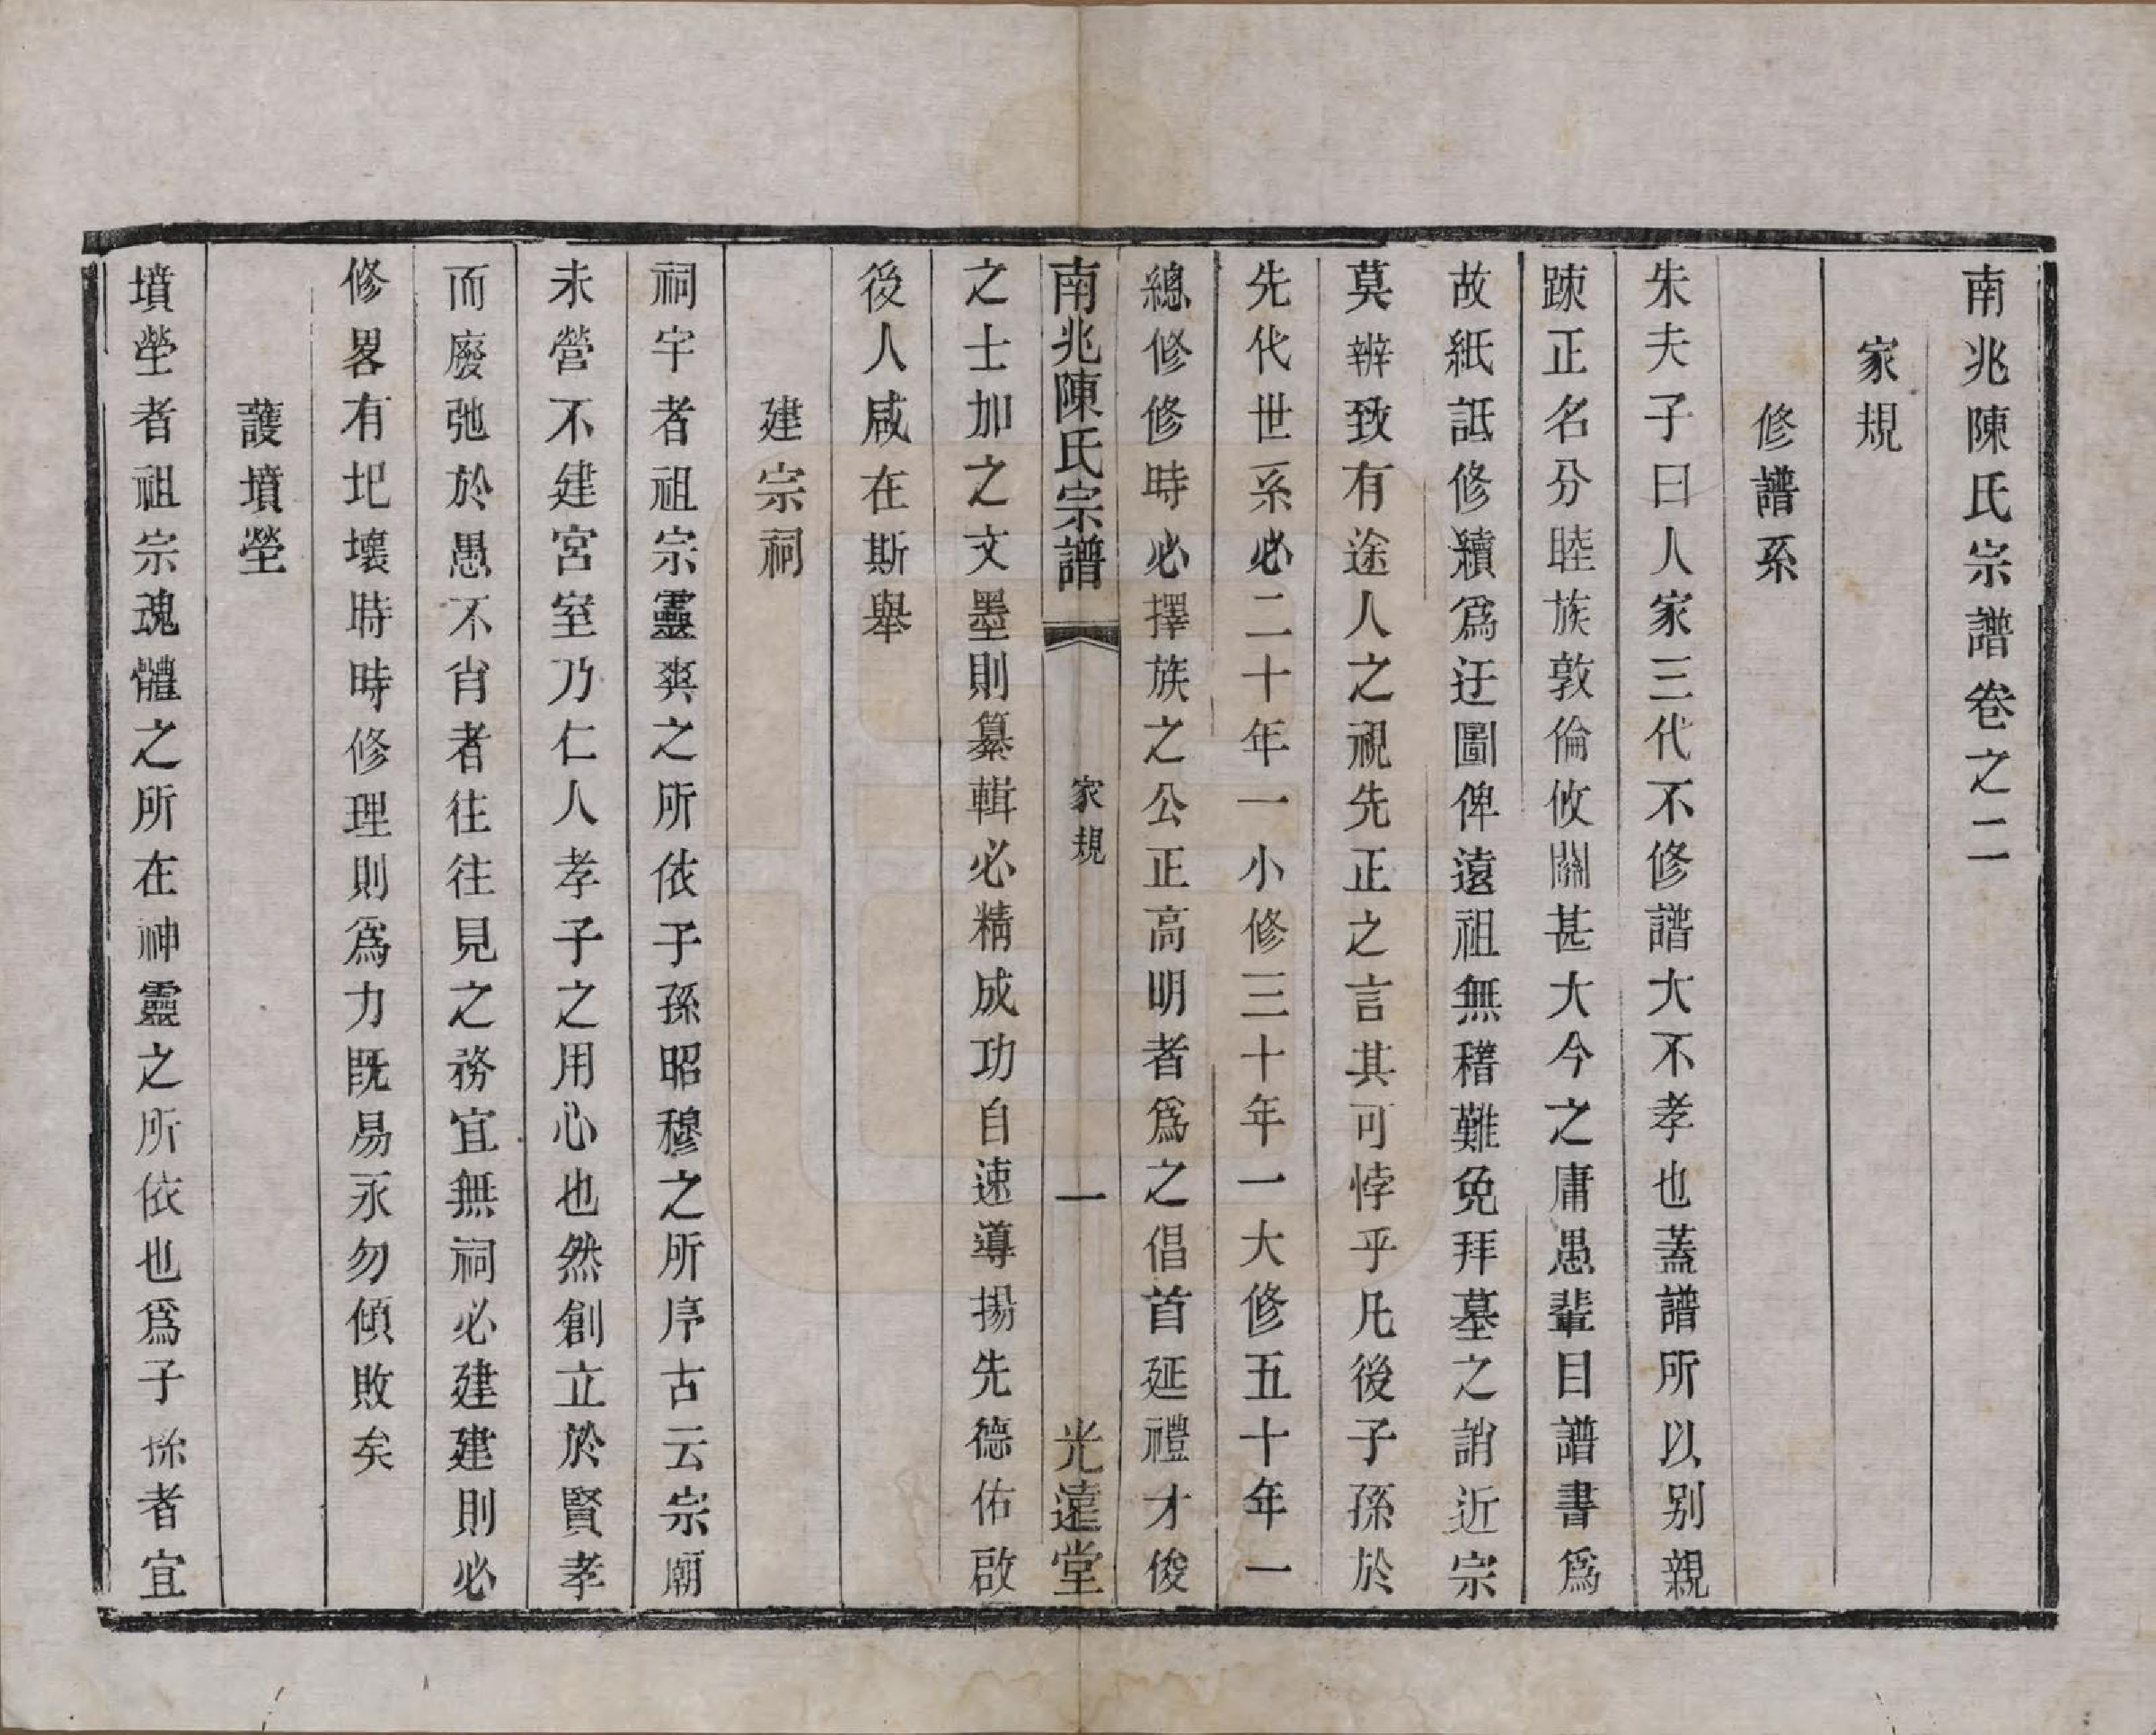 南兆陳氏宗譜卷之二
家規
修譜系
朱夫子曰人家三代不修譜大不孝也蓋譜所以别親
踈正名分睦族敦倫攸關甚大今之庸愚輩目譜書爲
故紙詆修纘爲迂圖俾遠祖無稽難免拜墓之誚近宗
莫辨致有途人之視先正之言其可悖乎凡後子孫於
先代世系必二十年一小修三十年一大修五十年一
總修修時必擇族之公正高明者爲之倡首延禮才俊
南兆陳氏宗譜 家規 一 光遠堂
之士加之文墨則纂輯必精成功自速導揚先德佑啟
後人咸在斯舉
建宗祠
祠宇者祖宗靈爽之所依子孫昭穆之所序古云宗廟
未營不建宮室乃仁人孝子之用心也然創立於賢孝
而廢弛於愚不肖者往往見之務宜無祠必建建則必
修畧有圮壞時時修理則爲力既易永勿傾敗矣
護墳塋
墳塋者祖宗魂體之所在神靈之所依也爲子孫者宜